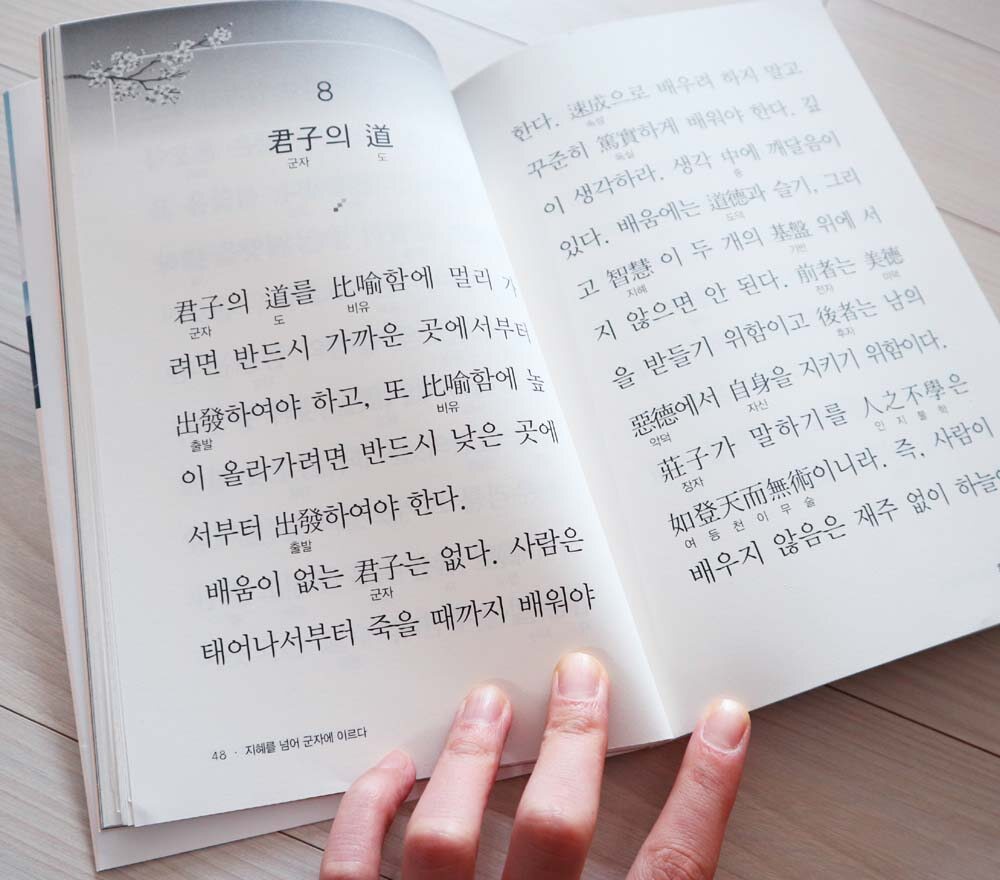 8
君子의 道
군자 도
君子의 道를 比喩함에 멀리 가
군자 도 비유
려면 반드시 가까운 곳에서부터
出發하여야 하고, 또 比喩함에 높
출발 비유
이 올라가려면 반드시 낮은 곳에
서부터 出發하여야 한다.
출발
배움이 없는 君子는 없다. 사람은
군자
태어나서부터 죽을 때까지 배워야
48 · 지혜를 넘어 군자에 이르다
한다. 速成으로 배우려 하지 말고
속성
꾸준히 篤實하게 배워야 한다. 깊
독실
이 생각하라. 생각 中에 깨달음이
중
있다. 배움에는 道德과 슬기, 그리
도덕
고 智慧 이 두 개의 基盤 위에 서
지혜 기반
지 않으면 안 된다. 前者는 美德
전자 미덕
을 받들기 위함이고 後者는 남의
후자
惡德에서 自身을 지키기 위함이다.
악덕 자신
莊子가 말하기를 人之不學은
장자 인지불학
如登天而無術이니라. 즉, 사람이
여등천이무술
배우지 않음은 재주 없이 하늘에